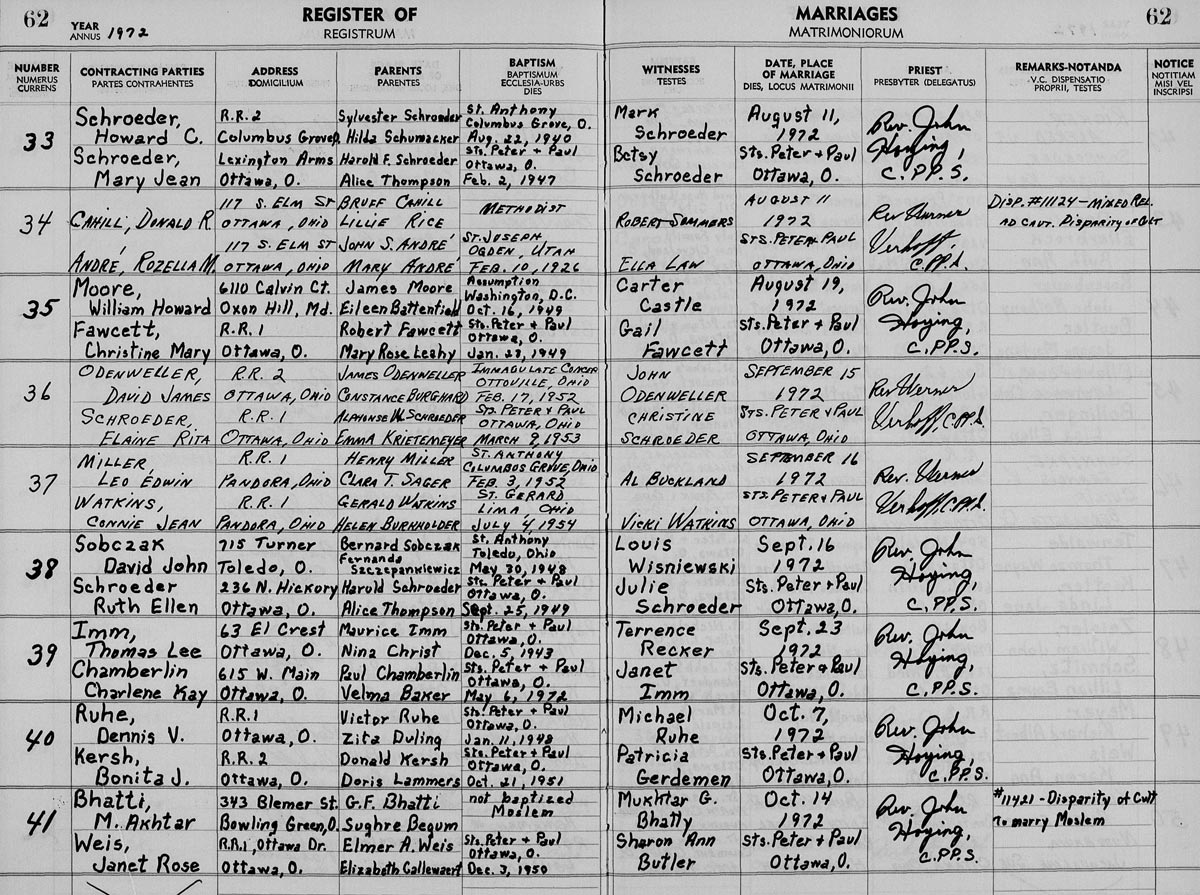 62
YEAR 1972
ANNUS
REGISTER OF
REGISTRUM
MARRIAGES
MATRIMONIORUM
62
NUMBER
NUMERUS
CURRENS
CONTRACTING PARTIES
PARTES CONTRAHENTES
ADDRESS
DOMICILIUM
PARENTS
PARENTES
BAPTISM
BAPTISMUM
ECCLESIA-URBS
DIES
WITNESSES
TESTES
DATE, PLACE
OF MARRIAGE
DIES, LOCUS MATRIMONII
PRIEST
PRESBYTER (DELEGATUS)
REMARKS-NOTANDA
V.C. DISPENSATIO
PROPRII, TESTES
NOTICE
NOTITIAM
MISI VEL
INSCRIPSI
33
Schroeder,
Howard C.
Schroeder,
Mary Jean
R.R.2
Columbus Grove,
Lexington Arms
Ottawa, O.
Sylvester Schroeder
Hilda Schumacker
Harold F. Schroeder
Alice Thompson
St. Anthony
Columbus Grove, O.
Aug. 22, 1940
Sts. Peter + Paul
Ottawa, O.
Feb. 2, 1947
Mark
Schroeder
Betsy
Schroeder
August 11,
1972
Sts. Peter + Paul
Ottawa, O.
Rev. John
Hoying,
C.PP.S.
34
CAHILL, DONALD R.
ANDRÉ, ROZELLA M.
117 S. ELM ST
OTTAWA, OHIO
117 S. ELM ST
OTTAWA, OHIO
BRUFF CAHILL
LILLIE RICE
JOHN S. ANDRÉ
MARY ANDRÉ
METHODIST
ST. JOSEPH
OGDEN, UTAH
FEB. 10, 1926
ROBERT SOMMERS
ELLA LAW
AUGUST 11
1972
STS. PETER PAUL
OTTAWA, OHIO
Rev Werner
Verhoff,
C.PP.S.
DISP. #11124 - MIXED REL.
AD CAUT. DISPARITY OF CULT
35
Moore,
William Howard
Fawcett,
Christine Mary
6110 Calvin Ct.
Oxon Hill, Md.
R.R.1
Ottawa, O.
James Moore
Eileen Battenfield
Robert Fawcett
Mary Rose Leahy
Assumption
Washington, D.C.
Oct. 16, 1949
Sts. Peter + Paul
Ottawa, O.
Jan. 23, 1949
Carter
Castle
Gail
Fawcett
August 19,
1972
Sts. Peter + Paul
Ottawa, O.
Rev. John
Hoying,
C.PP.S.
36
ODENWELLER,
DAVID JAMES
SCHROEDER,
ELAINE RITA
R.R. 2
OTTAWA, OHIO
R.R. 1
OTTAWA, OHIO
JAMES ODENWELLER
CONSTANCE BURGHARD
ALPHONSE W. SCHROEDER
EMMA KRIETEMEYER
IMMACULATE CONCEP
OTTOVILLE, OHIO
FEB. 17, 1952
STS. PETER & PAUL
OTTAWA, OHIO
MARCH 9, 1953
JOHN
ODENWELLER
CHRISTINE
SCHROEDER
SEPTEMBER 15
1972
STS. PETER & PAUL
OTTAWA, OHIO
Rev Werner
Verhoff, C.PP.S.
37
MILLER,
LEO EDWIN
WATKINS,
CONNIE JEAN
R.R. 1
PANDORA, OHIO
R.R. 1
PANDORA, OHIO
HENRY MILLER
CLARA T. SAGER
GERALD WATKINS
HELEN BURKHOLDER
ST. ANTHONY
COLUMBUS GROVE, OHIO
FEB. 3, 1952
ST. GERARD
LIMA, OHIO
JULY 4, 1954
AL BUCKLAND
VICKI WATKINS
SEPTEMBER 16
1972
STS. PETER & PAUL
OTTAWA, OHIO
Rev. Werner
Verhoff, C.PP.S.
38
Sobczak
David John
Schroeder
Ruth Ellen
715 Turner
Toledo, O.
236 N. Hickory
Ottawa, O.
Bernard Sobczak
Fernanda
Szczepankiewicz
Harold Schroeder
Alice Thompson
St. Anthony
Toledo, Ohio
May 30, 1948
Sts. Peter + Paul
Ottawa, O.
Sept. 25, 1949
Louis
Wisniewski
Julie
Schroeder
Sept. 16
1972
Sts. Peter + Paul
Ottawa, O.
Rev. John
Hoying,
C.PP.S.
39
Imm,
Thomas Lee
Chamberlin
Charlene Kay
63 El Crest
Ottawa, O.
615 W. Main
Ottawa, O.
Maurice Imm
Nina Christ
Paul Chamberlin
Velma Baker
Sts. Peter + Paul
Ottawa, O.
Dec. 5, 1943
Sts. Peter + Paul
Ottawa, O.
May 6, 1972
Terrence
Recker
Janet
Imm
Sept. 23
1972
Sts. Peter + Paul
Ottawa, O.
Rev. John
Hoying,
C.PP.S.
40
Ruhe,
Dennis V.
Kersh,
Bonita J.
R.R.1
Ottawa, O.
R.R.2
Ottawa, O.
Victor Ruhe
Zita Duling
Donald Kersh
Doris Lammers
Sts. Peter + Paul
Ottawa, O.
Jan. 11, 1948
Sts. Peter + Paul
Ottawa, O.
Oct. 21, 1951
Michael
Ruhe
Patricia
Gerdemen
Oct. 7,
1972
Sts. Peter + Paul
Ottawa, O.
Rev. John
Hoying,
C.PP.S.
41
Bhatti,
M. Akhtar
Weis,
Janet Rose
343 Blemer St.
Bowling Green, O.
R.R.1, Ottawa Dr.
Ottawa, O.
G.F. Bhatti
Sughre Begum
Elmer A. Weis
Elizabeth Gallewaert
not baptized
Moslem
Sts. Peter + Paul
Ottawa, O.
Dec. 3, 1950
Mukhtar G.
Bhatty
Sharon Ann
Butler
Oct. 14
1972
Sts. Peter + Paul
Ottawa, O.
Rev. John
Hoying,
C.PP.S.
#11421 - Disparity of Cult
To marry Moslem